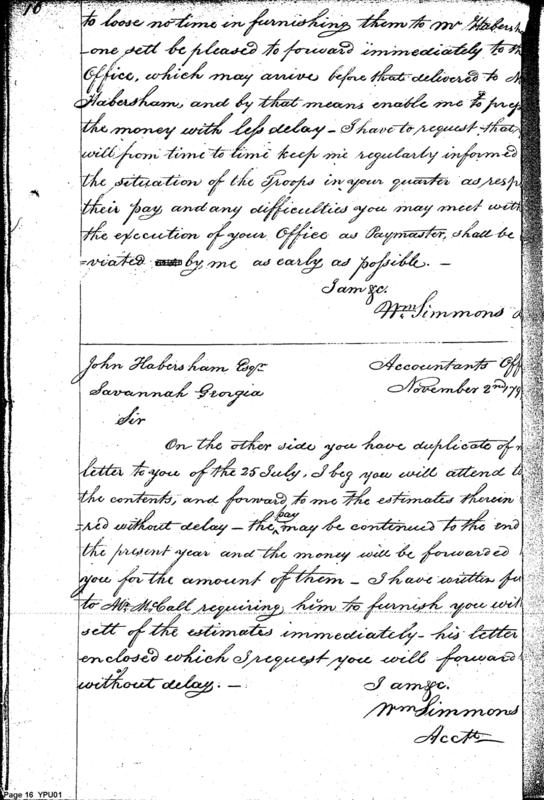 16
to loose no time in furnishing them to Mr Habersh
one sett be pleased to forward immediately to th
Office, which may arrive before that delivered to M
Habersham, and by that means enable me to prep
the money with less delay – I have to request that
will from time to time keep me regularly informed
the situation of the Troops in your quarter as resp
their pay and any difficulties you may meet with
the execution of your Office as Paymaster, shall be
=viated by me as early as possible. –
I am &c.
Wm. Simmons
John Habersham Esqr.
Accountants Off
Savannah Georgia
November 2nd 179
Sir
On the other side you have duplicate of
letter to you of the 25 July, I beg you will attend to
the contents, and forward to me the estimates therein
=red without delay – the pay may be continued to the end
the present year and the money will be forwarded
you for the amount of them – I have written fu
to Mr. McCall requiring him to furnish you wit
sett of the estimates immediately – his letter
enclosed which I request you will forward
without delay. –
I am &c.
Wm Simmons
Acctt
Page 16 YPU01